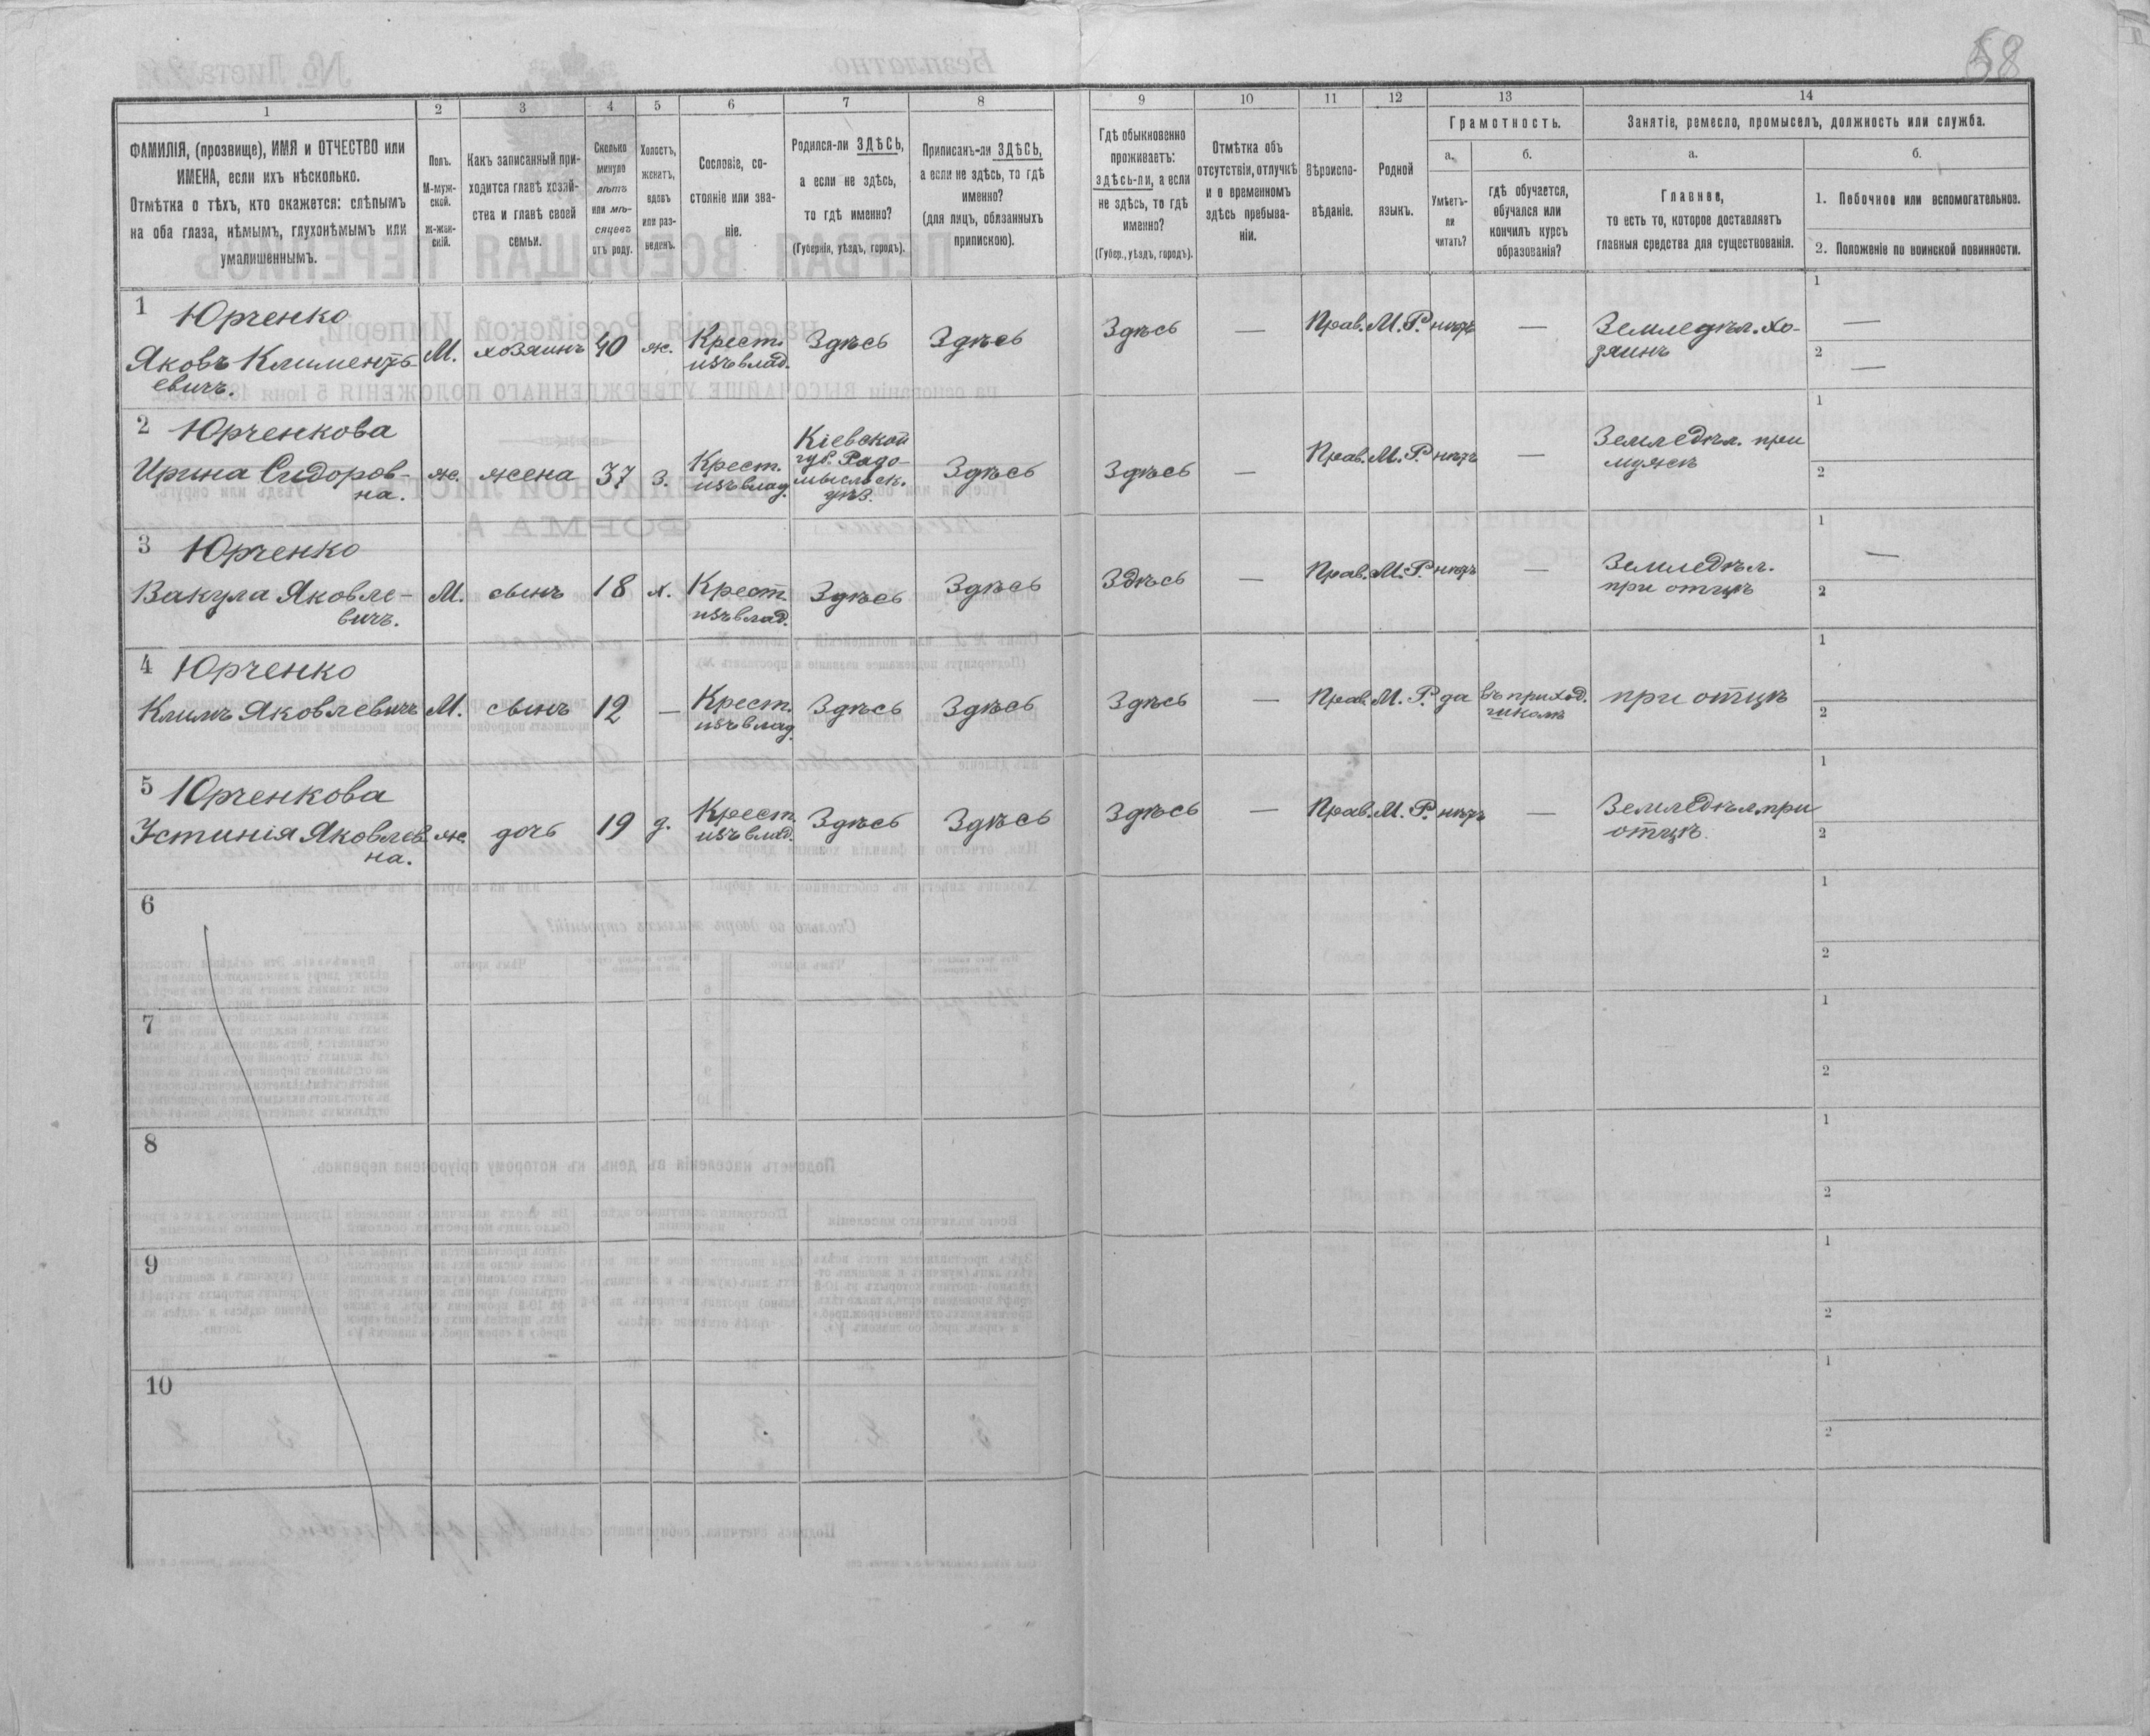 58
1 2 3 4 5 6 7 8 9 10 11 12 13 14
ФАМИЛІЯ, (прозвище), ИМЯ и ОТЧЕСТВО или
ИМЕНА, если ихъ нѣсколько.
Отмѣтка о тѣхъ, кто окажется: слѣпымъ
на оба глаза, нѣмымъ, глухонѣмымъ или
умалишеннымъ.
Полъ.
М-муж-
ской.
Ж-жен-
скій.
Какъ записанный при-
ходится главѣ хозяй-
ства и главѣ своей
семьи.
Сколько
минуло
лѣтъ
или мѣ-
сяцевъ
отъ роду.
Холостъ,
женатъ,
вдовъ
или раз-
веденъ.
Сословіе, со-
стояніе или зва-
ніе.
Родился-ли ЗДѢСЬ,
а если не здѣсь,
то гдѣ именно?
(Губернія, уѣздъ, городъ).
Приписанъ-ли ЗДѢСЬ,
а если не здѣсь, то гдѣ
именно?
(для лицъ, обязанныхъ
припискою).
Гдѣ обыкновенно
проживаетъ:
здѣсь-ли, а если
не здѣсь, то гдѣ
именно?
(Губер., уѣздъ, городъ).
Отмѣтка объ
отсутствіи, отлучкѣ
и о временномъ
здѣсь пребыва-
ніи.
Вѣроиспо-
вѣданіе.
Родной
языкъ.
Грамотность.
а. б.
Умѣетъ-
ли
читать?
гдѣ обучается,
обучался или
кончилъ курсъ
образованія?
Занятіе, ремесло, промыселъ, должность или служба.
а. б.
Главное,
то есть то, которое доставляетъ
главныя средства для существованія.
1. Побочное или вспомогательное.
2. Положеніе по воинской повинности.
1 Юрченко
Яковъ Климентъ-
евичъ.
М. хозяинъ 40 ж. Крест.
изъ влад.
Здѣсь Здѣсь Здѣсь — Прав. М. Р. нѣтъ —
Земледѣл. хо-
зяинъ
1 —
2 —
2 Юрченкова
Ирина Сидоров-
на.
ж. жена 37 з. Крест.
изъ влад.
Кіевской
губ. Радо-
мысльск.
уѣз.
Здѣсь Здѣсь — Прав. М. Р. нѣтъ —
Земледѣл. при
мужѣ
1
2
3 Юрченко
Вакула Яковле-
вичъ.
М. сынъ 18 х. Крест.
изъ влад.
Здѣсь Здѣсь Здѣсь — Прав. М. Р. нѣтъ —
Земледѣл.
при отцѣ
1 —
2
4 Юрченко
Климъ Яковлевичъ
М. сынъ 12 — Крест.
изъ влад.
Здѣсь Здѣсь Здѣсь — Прав. М. Р. да въ приход.
школѣ
при отцѣ
1
2
5 Юрченкова
Устинія Яковлев
на.
ж. дочь 19 д. Крест.
изъ влад.
Здѣсь Здѣсь Здѣсь — Прав. М. Р. нѣтъ —
Земледѣл. при
отцѣ.
1
2
6
1
2
7
1
2
8
1
2
9
1
2
10
1
2